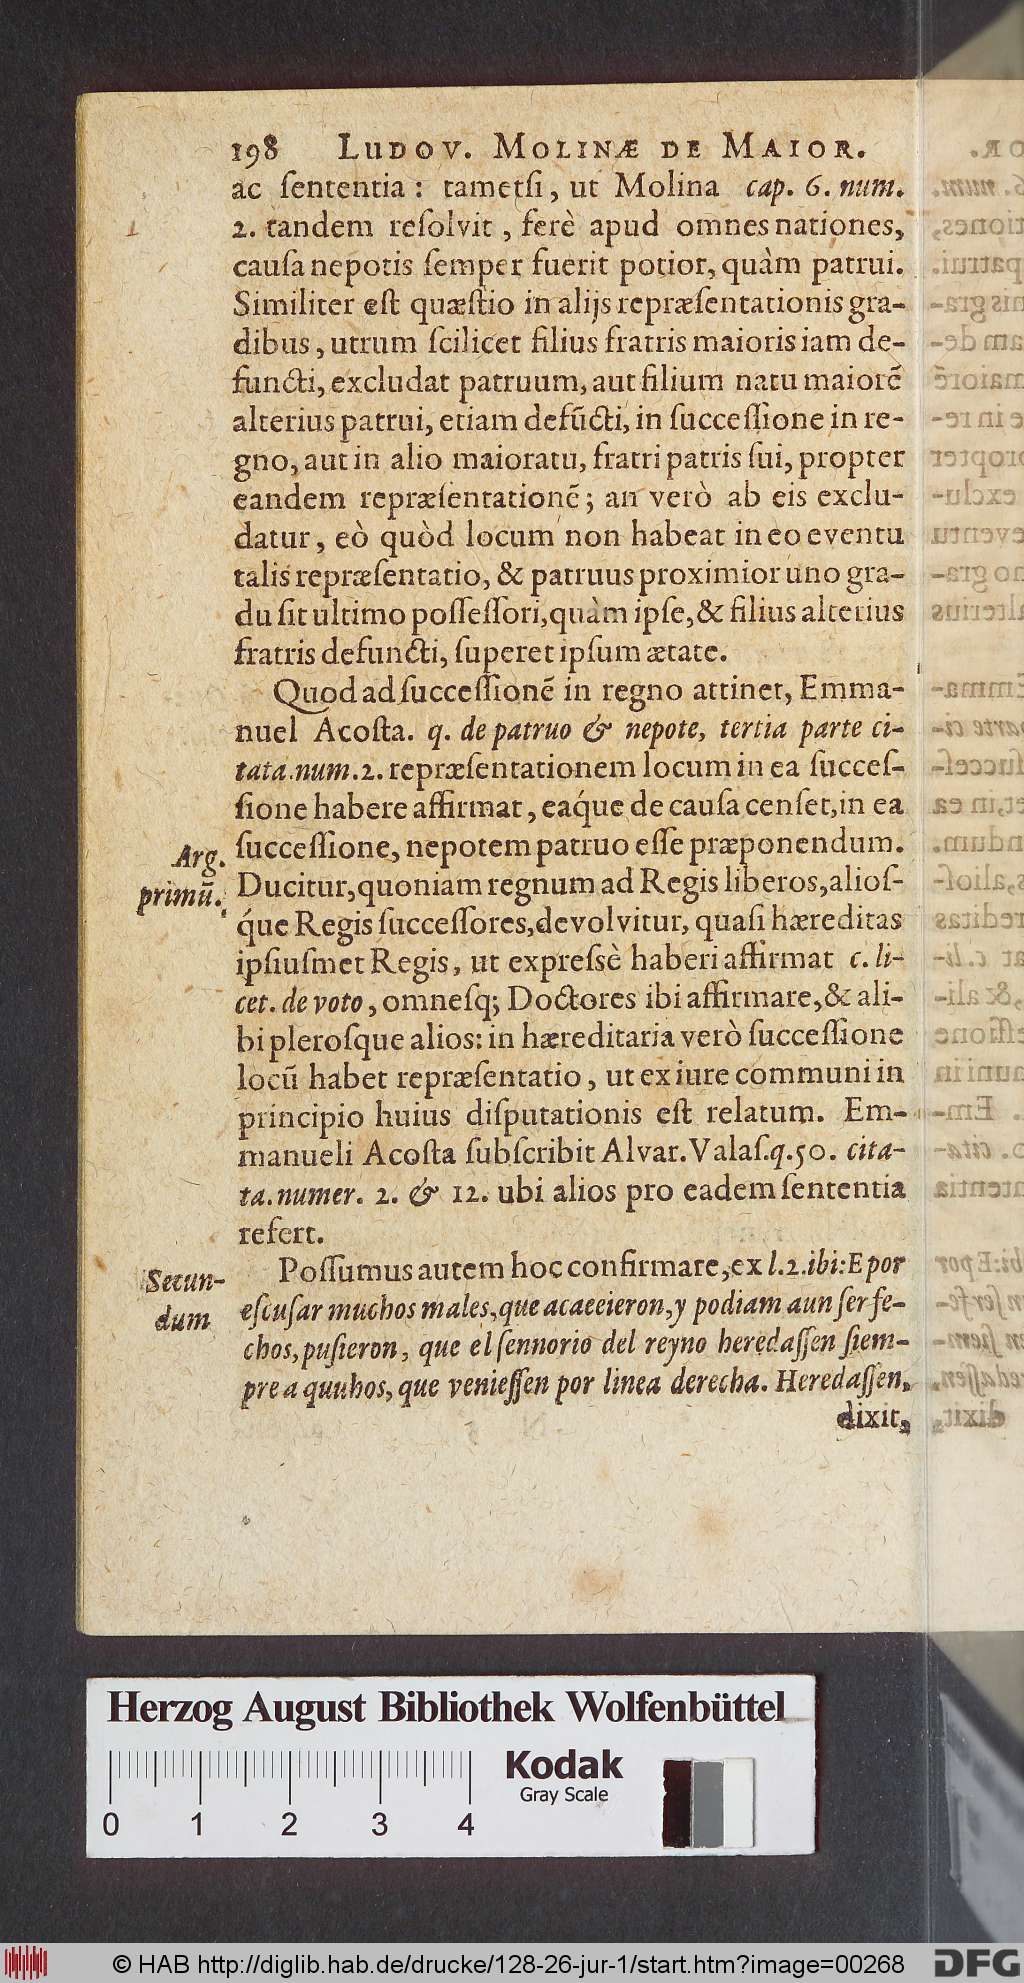 198 LUDOV. MOLINÆ DE MAIOR.
ac ſententia : tametſi, ut Molina cap. 6. num.
2. tandem reſolvit, ferè apud omnes nationes,
cauſa nepotis ſemper fuerit potior, quàm patrui.
Similiter eſt quæſtio in alijs repræſentationis gra-
dibus, utrum ſcilicet filius fratris maioris iam de-
functi, excludat patruum, aut filium natu maiorẽ
alterius patrui, etiam defũcti, in ſucceſſione in re-
gno, aut in alio maioratu, fratri patris ſui, propter
eandem repræſentationẽ; an verò ab eis exclu-
datur, eò quòd locum non habeat in eo eventu
talis repræſentatio, & patruus proximior uno gra-
du ſit ultimo poſſeſſori, quàm ipſe, & filius alterius
fratris defuncti, ſuperet ipſum ætate.
Quod ad ſucceſſionẽ in regno attinet, Emma-
nuel Acoſta. q. de patruo & nepote, tertia parte ci-
tata.num.2. repræſentationem locum in ea ſucceſ-
ſione habere affirmat, eáque de cauſa cenſet, in ea
ſucceſſione, nepotem patruo eſſe præponendum.
Arg.
primũ.
Ducitur, quoniam regnum ad Regis liberos, alioſ-
q́ue Regis ſucceſſores, devolvitur, quaſi hæreditas
ipſiuſmet Regis, ut expreſsè haberi affirmat c. li-
cet. de voto, omneſq; Doctores ibi affirmare, & ali-
bi pleroſque alios: in hæreditaria verò ſucceſſione
locũ habet repræſentatio, ut ex iure communi in
principio huius diſputationis eſt relatum. Em-
manueli Acoſta ſubſcribit Alvar. Valaſ. q. 50. cita-
ta. numer. 2. & 12. ubi alios pro eadem ſententia
refert.
Secun-
dum
Poſſumus autem hoc confirmare, ex l. 2. ibi: E por
eſcuſar muchos males, que acaeeieron, y podiam aun ſer fe-
chos, puſieron, que el ſennorio del reyno heredaſſen ſiem-
pre a quuhos, que venieſſen por linea derecha. Heredaſſen,
dixit,
Herzog August Bibliothek Wolfenbüttel
Kodak
Gray Scale
0 1 2 3 4
© HAB http://diglib.hab.de/drucke/128-26-jur-1/start.htm?image=00268
DFG